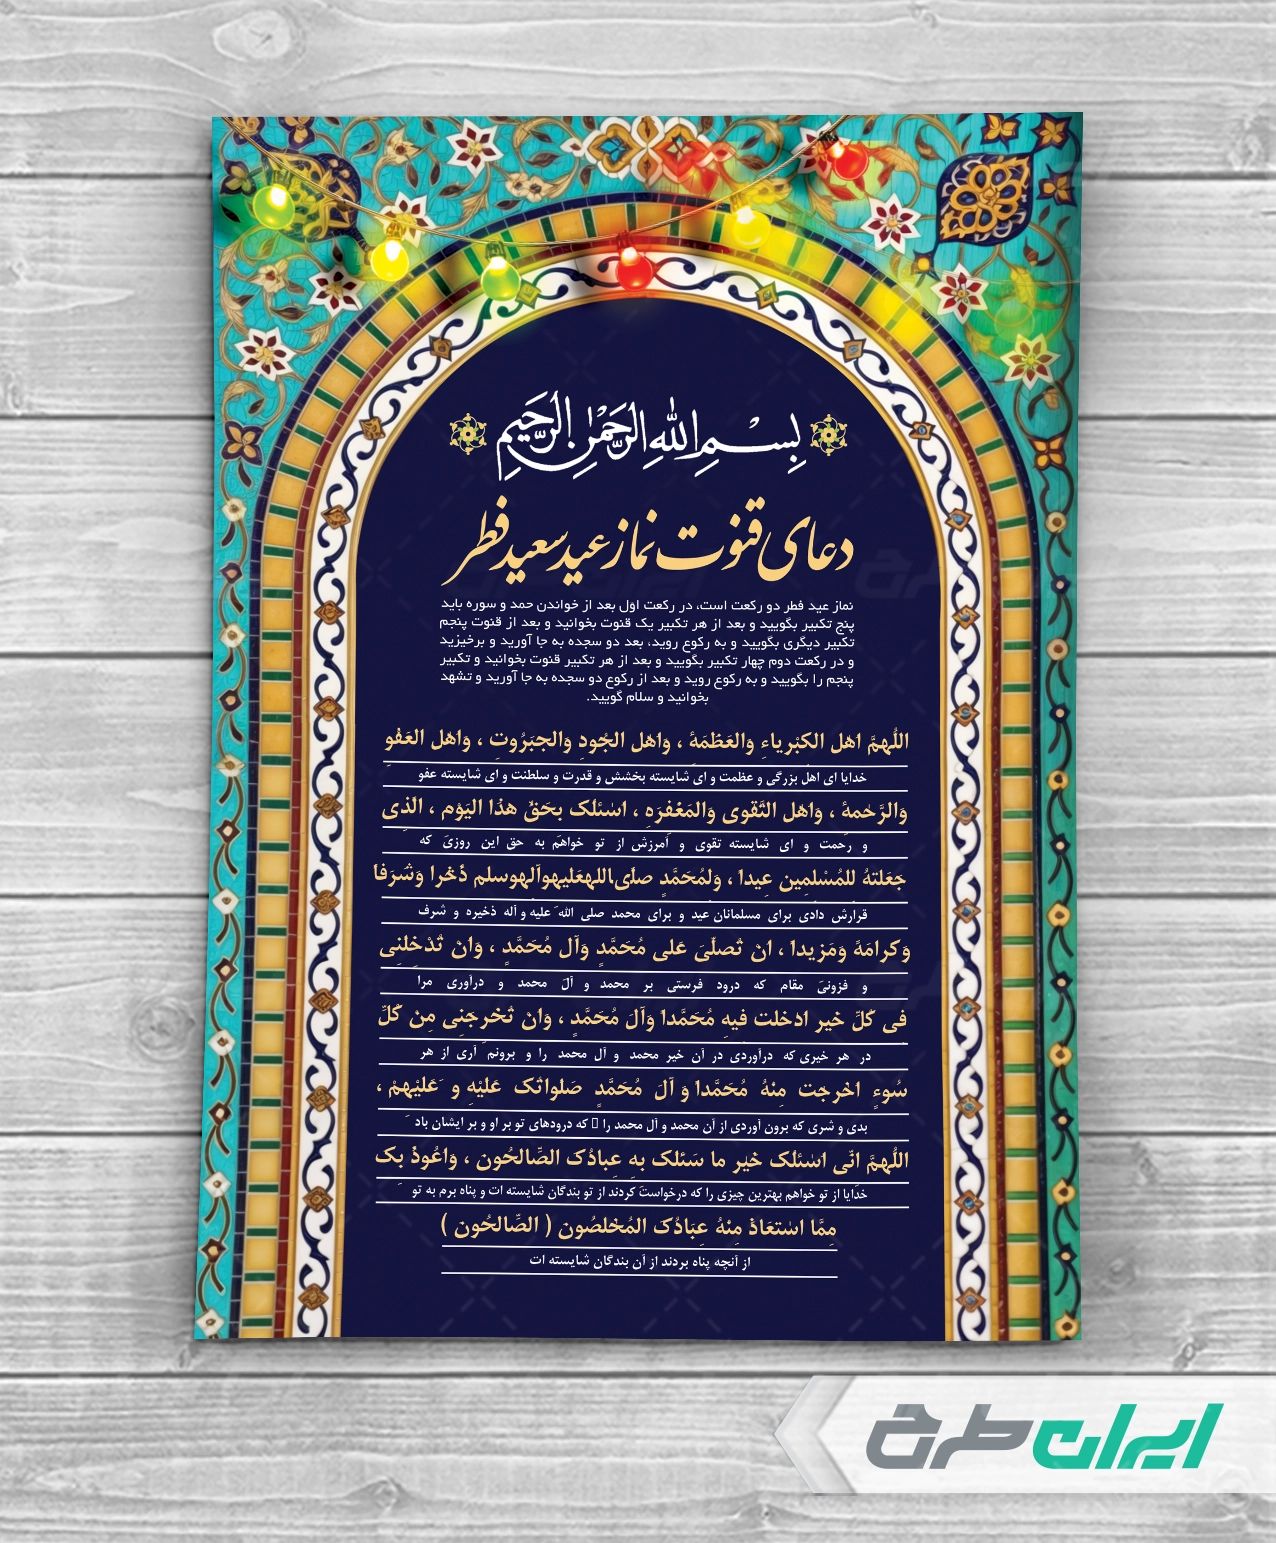 بِسْمِ اللهِ الرَّحْمٰنِ الرَّحِيمِ
دعای قنوت نماز عید سعید فطر
نماز عید فطر دو رکعت است، در رکعت اول بعد از خواندن حمد و سوره باید
پنج تکبیر بگویید و بعد از هر تکبیر یک قنوت بخوانید و بعد از قنوت پنجم
تکبیر دیگری بگویید و به رکوع روید، بعد دو سجده به جا آورید و برخیزید
و در رکعت دوم چهار تکبیر بگویید و بعد از هر تکبیر قنوت بخوانید و تکبیر
پنجم را بگویید و به رکوع روید و بعد از رکوع دو سجده به جا آورید و تشهد
بخوانید و سلام گویید.
اللّٰهمَّ اهْل الکبْریاءِ والعَظمَةُ ، وَاهْل الجُودِ والجبَرُوتِ ، وَاهْل العَفْو
خدایا ای اهل بزرگی و عظمت و ای شایسته بخشش و قدرت و سلطنت و ای شایسته عفو
وَالرَّحْمةُ ، وَاهْل التَّقوی وَالمَغْفرَهِ ، اسْئلک بحَقِّ هذَا الیَوْم ، الَّذِی
و رحمت و ای شایسته تقوی و آمرزش از تو خواهم به حق این روزی که
جَعَلتهُ للمُسْلِمِین عِیداً ، وَلمُحَمَّدٍ صلّی‌اللهعلیهوآلهوسلم ذُخْرا وَشَرَفاً
قرارش دادی برای مسلمانان عید و برای محمد صلی الله علیه و آله ذخیره و شرف
وَکرامَةً وَمَزیداً ، ان تُصلِّیَ عَلی مُحَمَّدٍ وَآل مُحَمَّدٍ ، وَان تُدْخِلنِی
و فزونی مقام که درود فرستی بر محمد و آل محمد و درآوری مرا
فی کُلِّ خیر ادخلت فیهِ مُحَمَّدا وَآلَ مُحَمَّدٍ ، وَان تُخْرجَنِی مِن کُلِّ
در هر خیری که درآوردی در آن خیر محمد و آل محمد را و برونم آری از هر
سُوءٍ اخرجت مِنْهُ مُحَمَّدا وَ آلَ مُحَمَّدٍ صَلواتُک عَلَیْهِ وَ عَلَیْهمْ ،
بدی و شری که برون آوردی از آن محمد و آل محمد را که درودهای تو بر او و بر ایشان باد
اللّٰهمَّ انّی اسْئلک خَیر ما سَئلک بهِ عِبادُک الصِّالحُون ، وَاعُوذُ بک
خدایا از تو خواهم بهترین چیزی را که درخواست کردند از تو بندگان شایسته ات و پناه برم به تو
مِمَّا اسْتعَاذَ مِنْهُ عِبَادُک المُخلصُون ( الصِّالحُون )
از آنچه پناه بردند از آن بندگان شایسته ات
ایران طرح